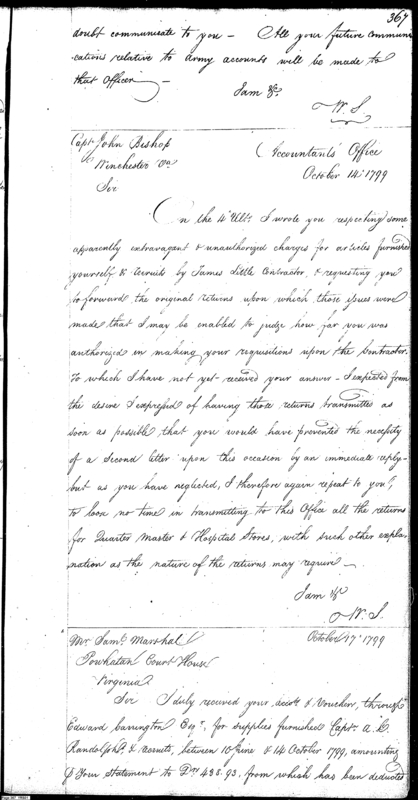 367
doubt communicate to you — All your future communi
cations relative to army accounts will be made to
that Officer —
I am &c
W. S.
Capt John Bishop
Winchester Va
Accountants Office
October 14th 1799
Sir
On the 4th Ulto. I wrote you respecting some
apparently extravagant & unauthorized charges for articles furnished
yourself & recruits by James Little Contractor, & requesting you
to forward the original returns upon which those issues were
made that I may be enabled to judge how far you was
authorized in making your requisitions upon the Contractor.
To which I have not yet received your answer — I expected from
the desire I expressed of having those returns transmitted as
soon as possible that you would have prevented the necessity
of a second letter upon this occasion by an immediate reply-
but as you have neglected, I therefore again repeat to you,
to loose no time in transmitting to this Office all the returns
for Quarter Master & Hospital Stores, with such other expla-
nation as the nature of the returns may require —
I am &c
W. S.
Mr. Saml. Marshal
October 17th 1799
Powhatan Court House
Virginia
Sir I duly received your accot. & Voucher, through
Edward Carrington Esqr. for supplies furnished Capt. A. C.
Randolph & recruits, between 10 June & 14 October 1799, amounting
Your Statement to Drs 438.93. from which has been deducted